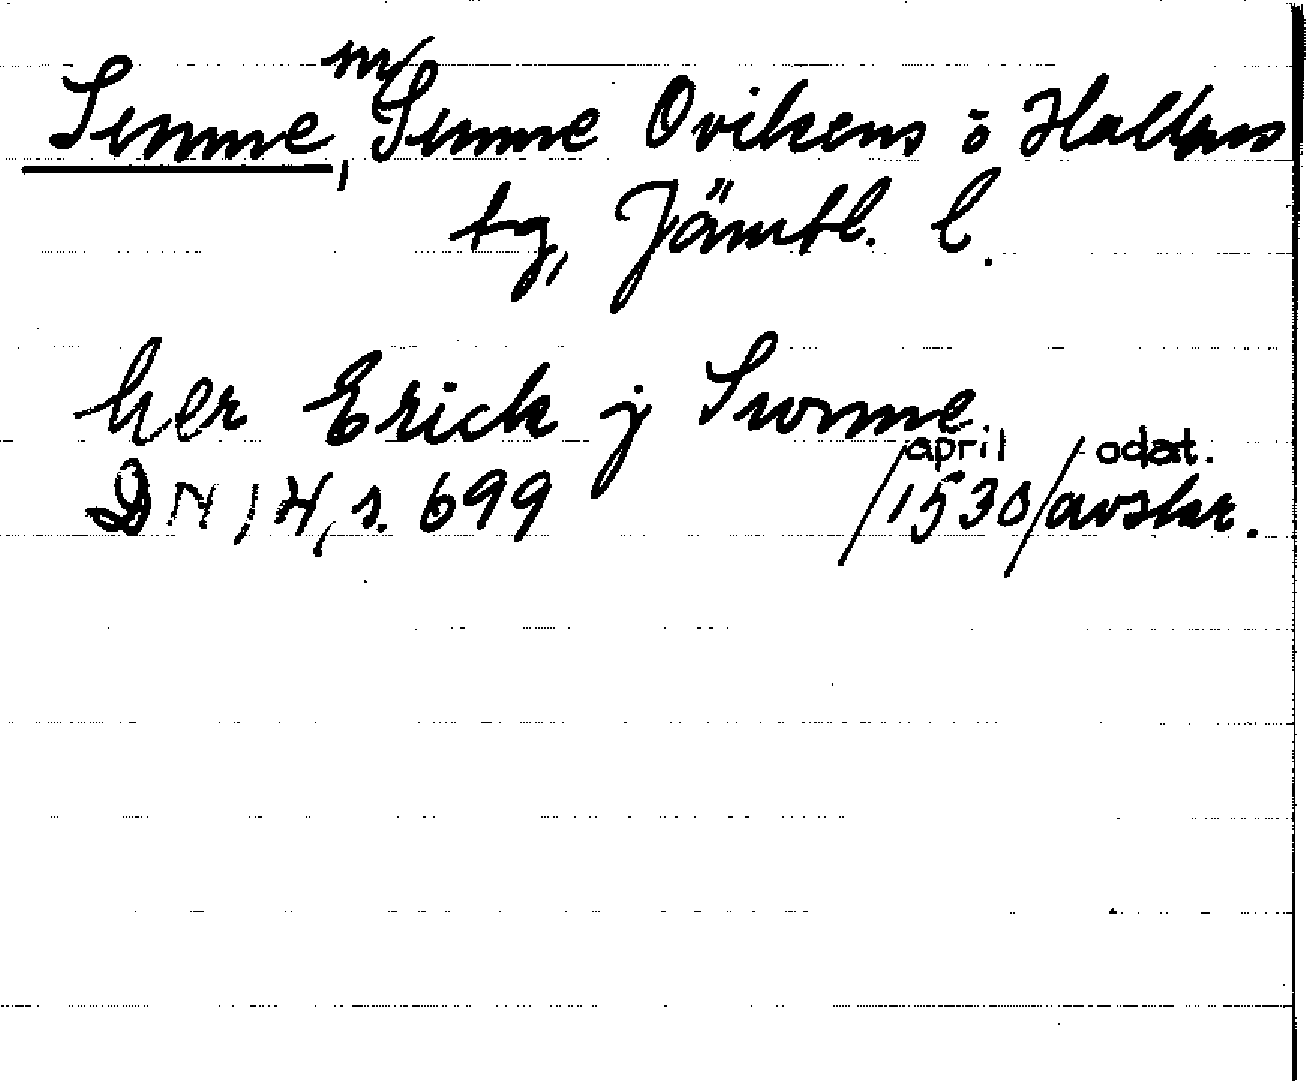 Sunne, m/ Sunne Ovikens o Hallens
tg, Jämtl. l.
her Erick j Swnne
april odat.
DN 14, s. 699 /1530/ avskr.